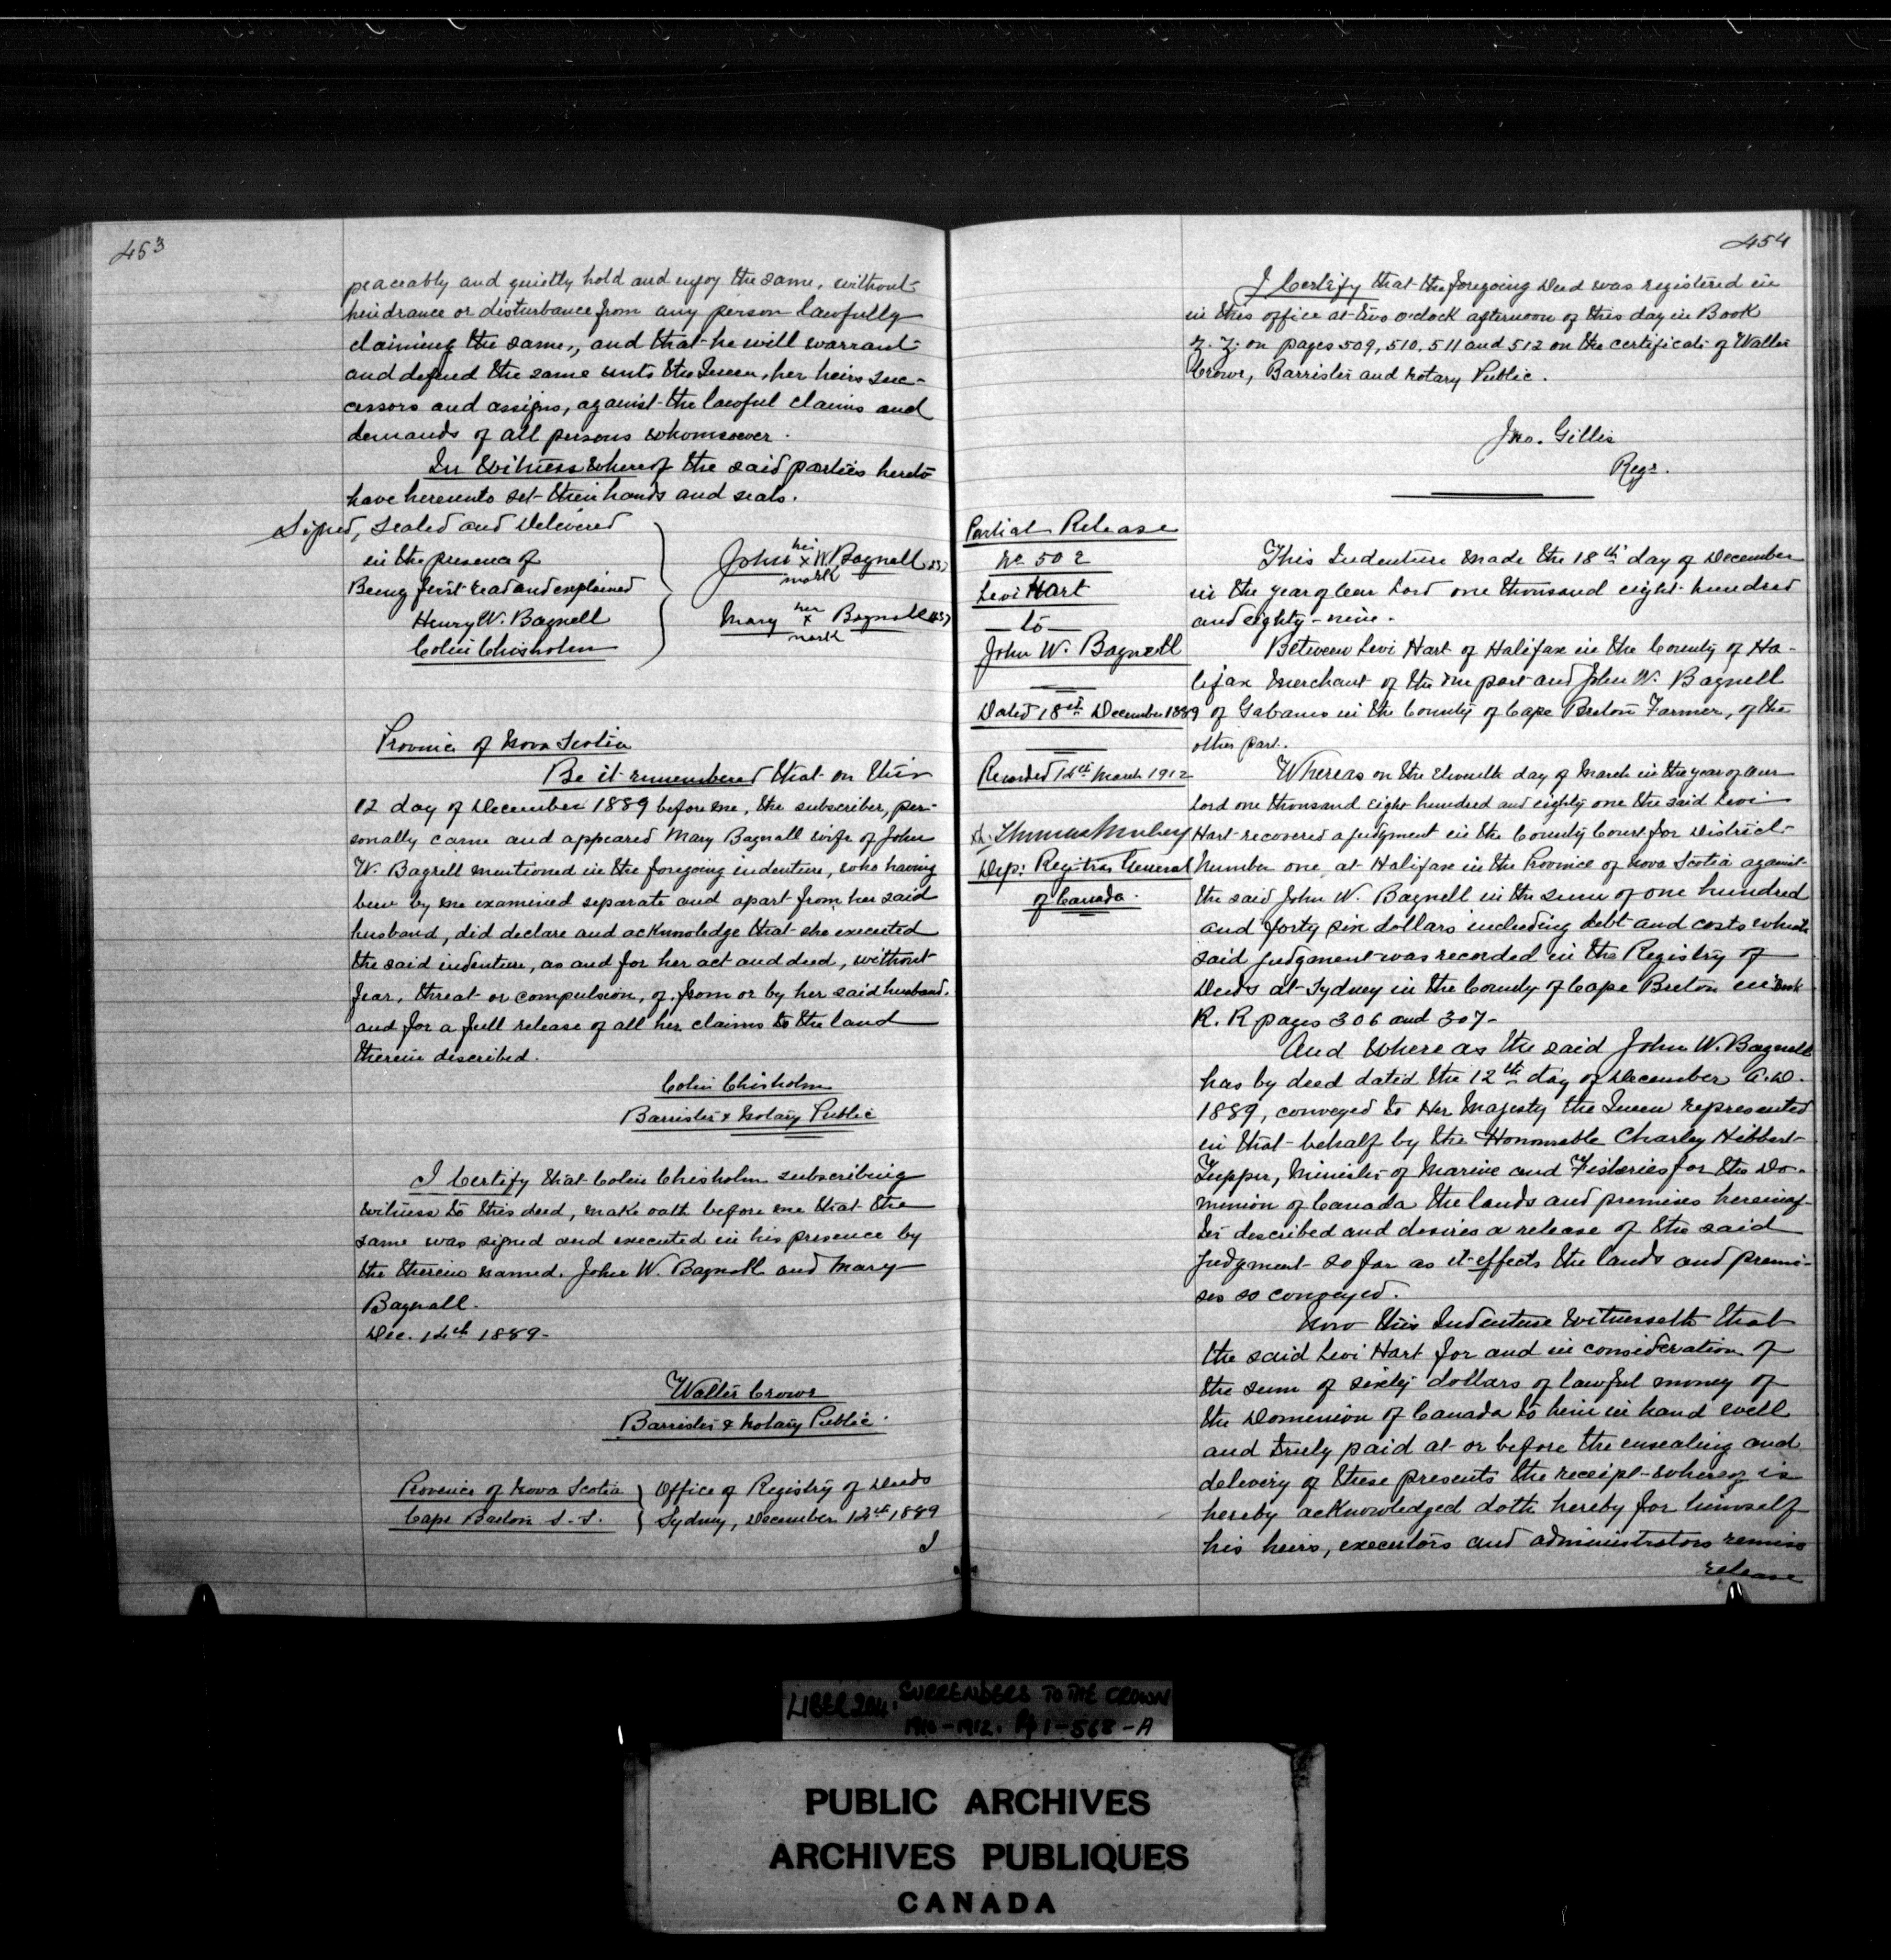 453
peaceably and quietly hold and enjoy the same, without
hindrance or disturbance from any person lawfully
claiming the same, and that he will warrant
and defend the same unto the Queen, her heirs suc-
cessors and assigns, against the lawful claims and
demands of all persons whomsoever.
In Witness Whereof the said parties hereto
have hereunto set their hands and seals.
Signed, Sealed and Delivered
in the presence of
Being first read and explained
Henry W. Bagnell
Colin Chisholm
his
John x W. Bagnell (LS)
mark
her
Mary x Bagnall (LS)
mark
Province of Nova Scotia
Be it remembered that on this
12 day of December 1889 before me, the subscriber, per-
sonally came and appeared Mary Bagnall wife of John
W. Bagnell mentioned in the foregoing indenture, who having
been by me examined separate and apart from her said
husband, did declare and acknowledge that she executed
the said indenture, as and for her act and deed, without
fear, threat or compulsion, of, from or by her said husband.
and for a full release of all her claims to the land
therein described.
Colin Chisholm
Barrister & Notary Public
I Certify that Colin Chisholm subscribing
witness to this deed, make oath before me that the
same was signed and executed in his presence by
the therein named. John W. Bagnell and Mary
Bagnall.
Dec. 14th 1889-
Walter Crowe
Barrister & Notary Public.
Province of Nova Scotia } Office of Registry of Deeds
Cape Breton S.S. } Sydney, December 14th 1889
I
454
I Certify that the foregoing Deed was registered in
in this office at two o'clock afternoon of this day in Book
Z. Z. on pages 509, 510, 511 and 512 on the certificate of Walter
Crowe, Barrister and Notary Public.
Jno. Gillis
Regr.
Partial Release
No. 502
Levi Hart
to
John W. Bagnell
Dated 18th December 1889
Recorded 14th March 1912
Dep: Registrar General
of Canada.
This Indenture made the 18th day of December
in the year of Our Lord one thousand eight hundred
and eighty-nine.
Between Levi Hart of Halifax in the County of Ha-
lifax Merchant of the one part and John W. Bagnell
of Gabarus in the County of Cape Breton Farmer, of the
other part.
Whereas on the eleventh day of March in the year of our
Lord one thousand eight hundred and eighty one the said Levi
Hart recovered a judgment in the County Court for District
Number one, at Halifax in the Province of Nova Scotia against
the said John W. Bagnell in the sum of one hundred
and forty six dollars including debt and costs which
said judgment was recorded in the Registry of
Deeds at Sydney in the County of Cape Breton in Book
R. R pages 306 and 307-
And Whereas the said John W. Bagnell
has by deed dated the 12th day of December A.D.
1889, conveyed to Her Majesty the Queen represented
in that behalf by the Honourable Charley Hibbert
Tupper, Minister of Marine and Fisheries for the Do-
minion of Canada the lands and premises hereinaf-
ter described and desires a release of the said
judgment so far as it effects the lands and premi-
ses so conveyed.
Now this Indenture Witnesseth that
the said Levi Hart for and in consideration of
the sum of sixty dollars of lawful money of
the Dominion of Canada to him in hand well
and truly paid at or before the ensealing and
delivery of these presents the receipt whereof is
hereby acknowledged doth hereby for himself
his heirs, executors and administrators remise
release
LIBER 204. SURRENDERS TO THE CROWN
1910-1912. Pp 1-568-A
PUBLIC ARCHIVES
ARCHIVES PUBLIQUES
CANADA